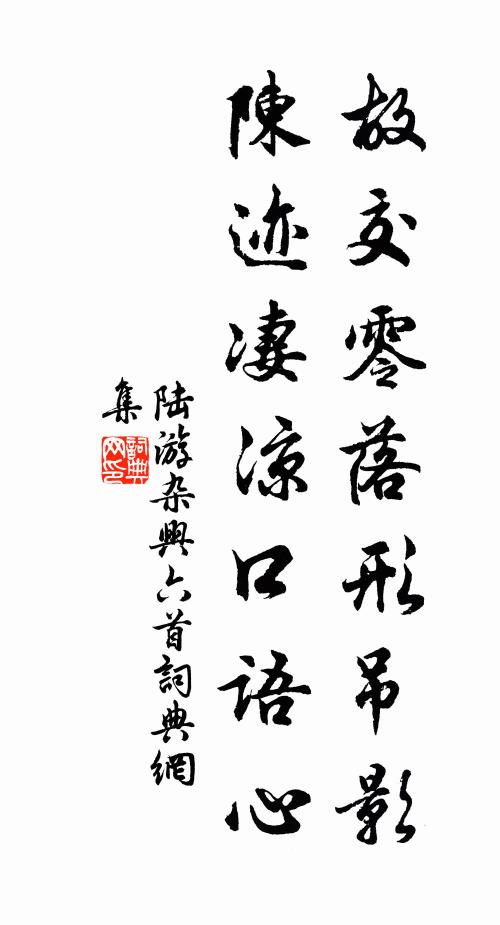 故交零落形吊影
陳迹凄涼口語心
陆游杂興六首詞典網
集
詞典
网印